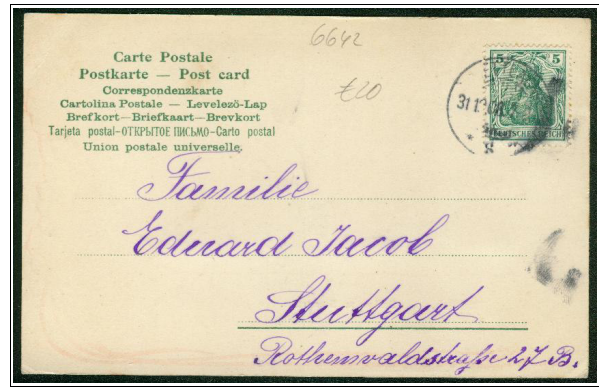 6642
Carte Postale
Postkarte — Post card
Correspondenzkarte
Cartolina Postale — Levelező-Lap
Brefkort—Briefkaart—Brevkort
Tarjeta postal-ОТКРЫТОЕ ПИСЬМО-Carto postal
Union postale universelle.
£20
5 5
DEUTSCHES REICH
31.12
Familie
Eduard Jacob
Stuttgart
Rothenwaldstraße 27 B.